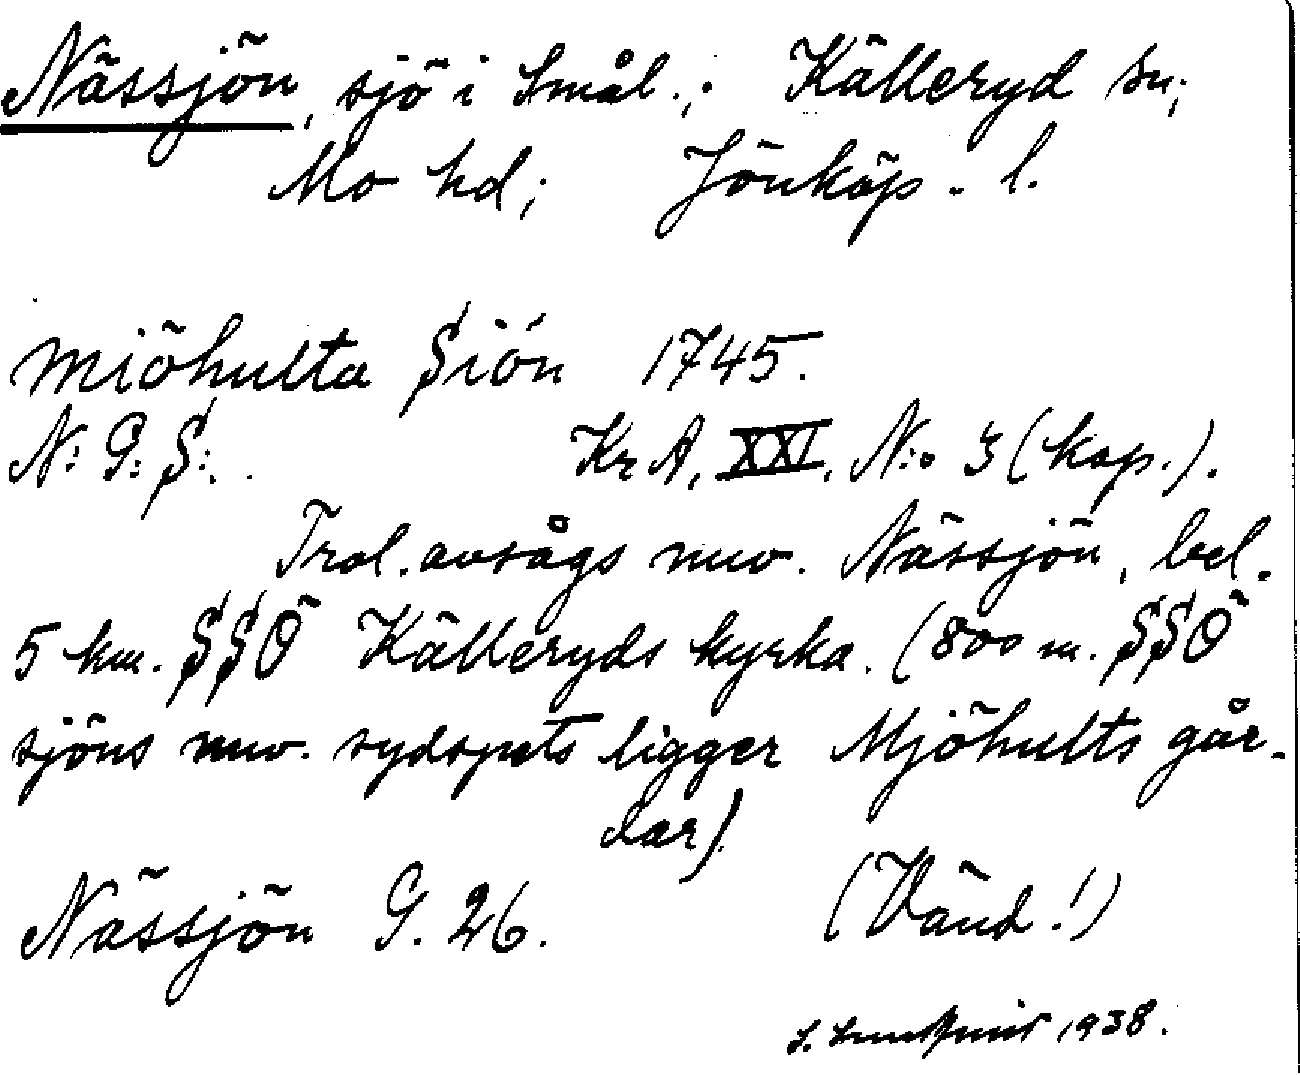 Nässjön, sjö i Smål.; Källeryd sn;
Mo hd; Jönköp. l.
Miöhulta Siön 1745.
N: G: S:. KrA, XXI, N:o 3 (kop.).
Trol. avsågs nuv. Nässjön, bel.
5 km. SSÖ Källeryds kyrka. (800 m. SSÖ
sjöns nuv. sydspets ligger Mjöhults går-
dar).
Nässjön G. 26. (Vänd!)
1938.